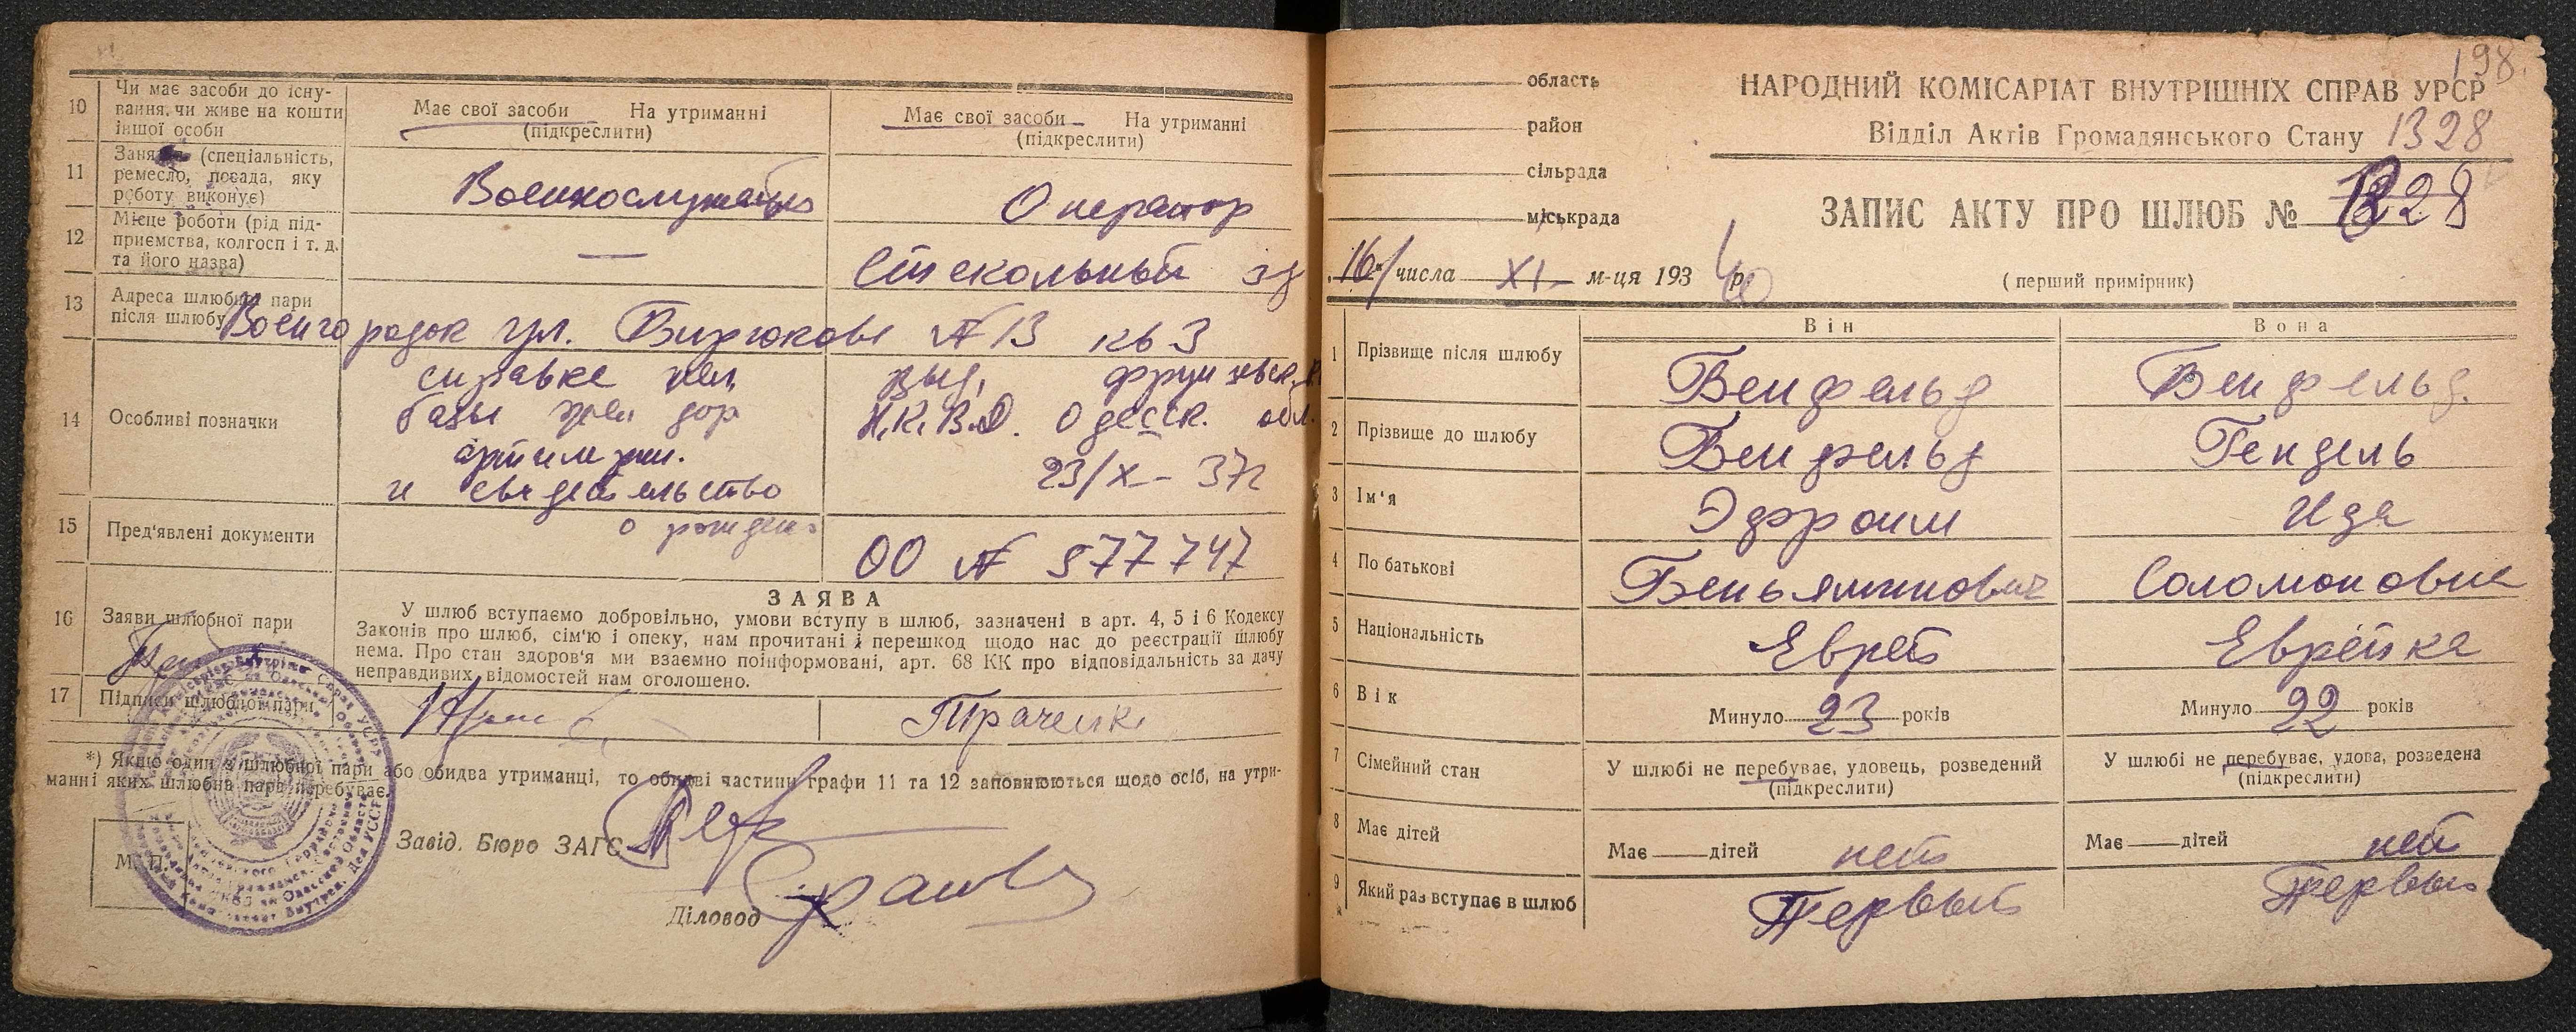 10 Чи має засоби до існу-
вання, чи живе на кошти
іншої особи
Має свої засоби На утриманні
(підкреслити)
Має свої засоби На утриманні
(підкреслити)
11 (спеціальність,
ремесло, посада, яку
роботу виконує)
Оператор
12 Місце роботи (рід під-
приємства, колгосп і т. д.
та його назва)
—
Стекольный
13 Адреса шлюбної пари
після шлюбу
№ 13 кв 3
14 Особливі позначки
справке
базы
и
о
выд.
Н.К.В.Д. Одесск. обл.
23/X – 37г
15 Пред'явлені документи
ОО № 577747
16 Заяви шлюбної пари
ЗАЯВА
У шлюб вступаємо добровільно, умови вступу в шлюб, зазначені в арт. 4, 5 і 6 Кодексу
Законів про шлюб, сім'ю і опеку, нам прочитані і перешкод щодо нас до реєстрації шлюбу
нема. Про стан здоров'я ми взаємно поінформовані, арт. 68 КК про відповідальність за дачу
неправдивих відомостей нам оголошено.
17 Підписи шлюбної пари
*) Якщо один з шлюбної пари або обидва утриманці, то обидві частини графи 11 та 12 заповнюються щодо осіб, на утри-
манні яких шлюбна пара перебуває.
М. П.
Завід. Бюро ЗАГС
Діловод
198.
область
район
сільрада
міськрада
НАРОДНИЙ КОМІСАРІАТ ВНУТРІШНІХ СПРАВ УРСР
Відділ Актів Громадянського Стану 1328
ЗАПИС АКТУ ПРО ШЛЮБ № 1328
16 числа XI м-ця 193 40 р.
(перший примірник)
Він Вона
1 Прізвище після шлюбу Бенфельд Бенфельд.
2 Прізвище до шлюбу Бенфельд Гендель
3 Ім'я Эфроим Ида
4 По батькові Беньяминович Соломоновна
5 Національність Еврей Еврейка
6 Вік Минуло 23 років Минуло 22 років
7 Сімейний стан У шлюбі не перебуває, удовець, розведений
(підкреслити)
У шлюбі не перебуває, удова, розведена
(підкреслити)
8 Має дітей Має — дітей нет Має — дітей нет
9 Який раз вступає в шлюб Первый Первый